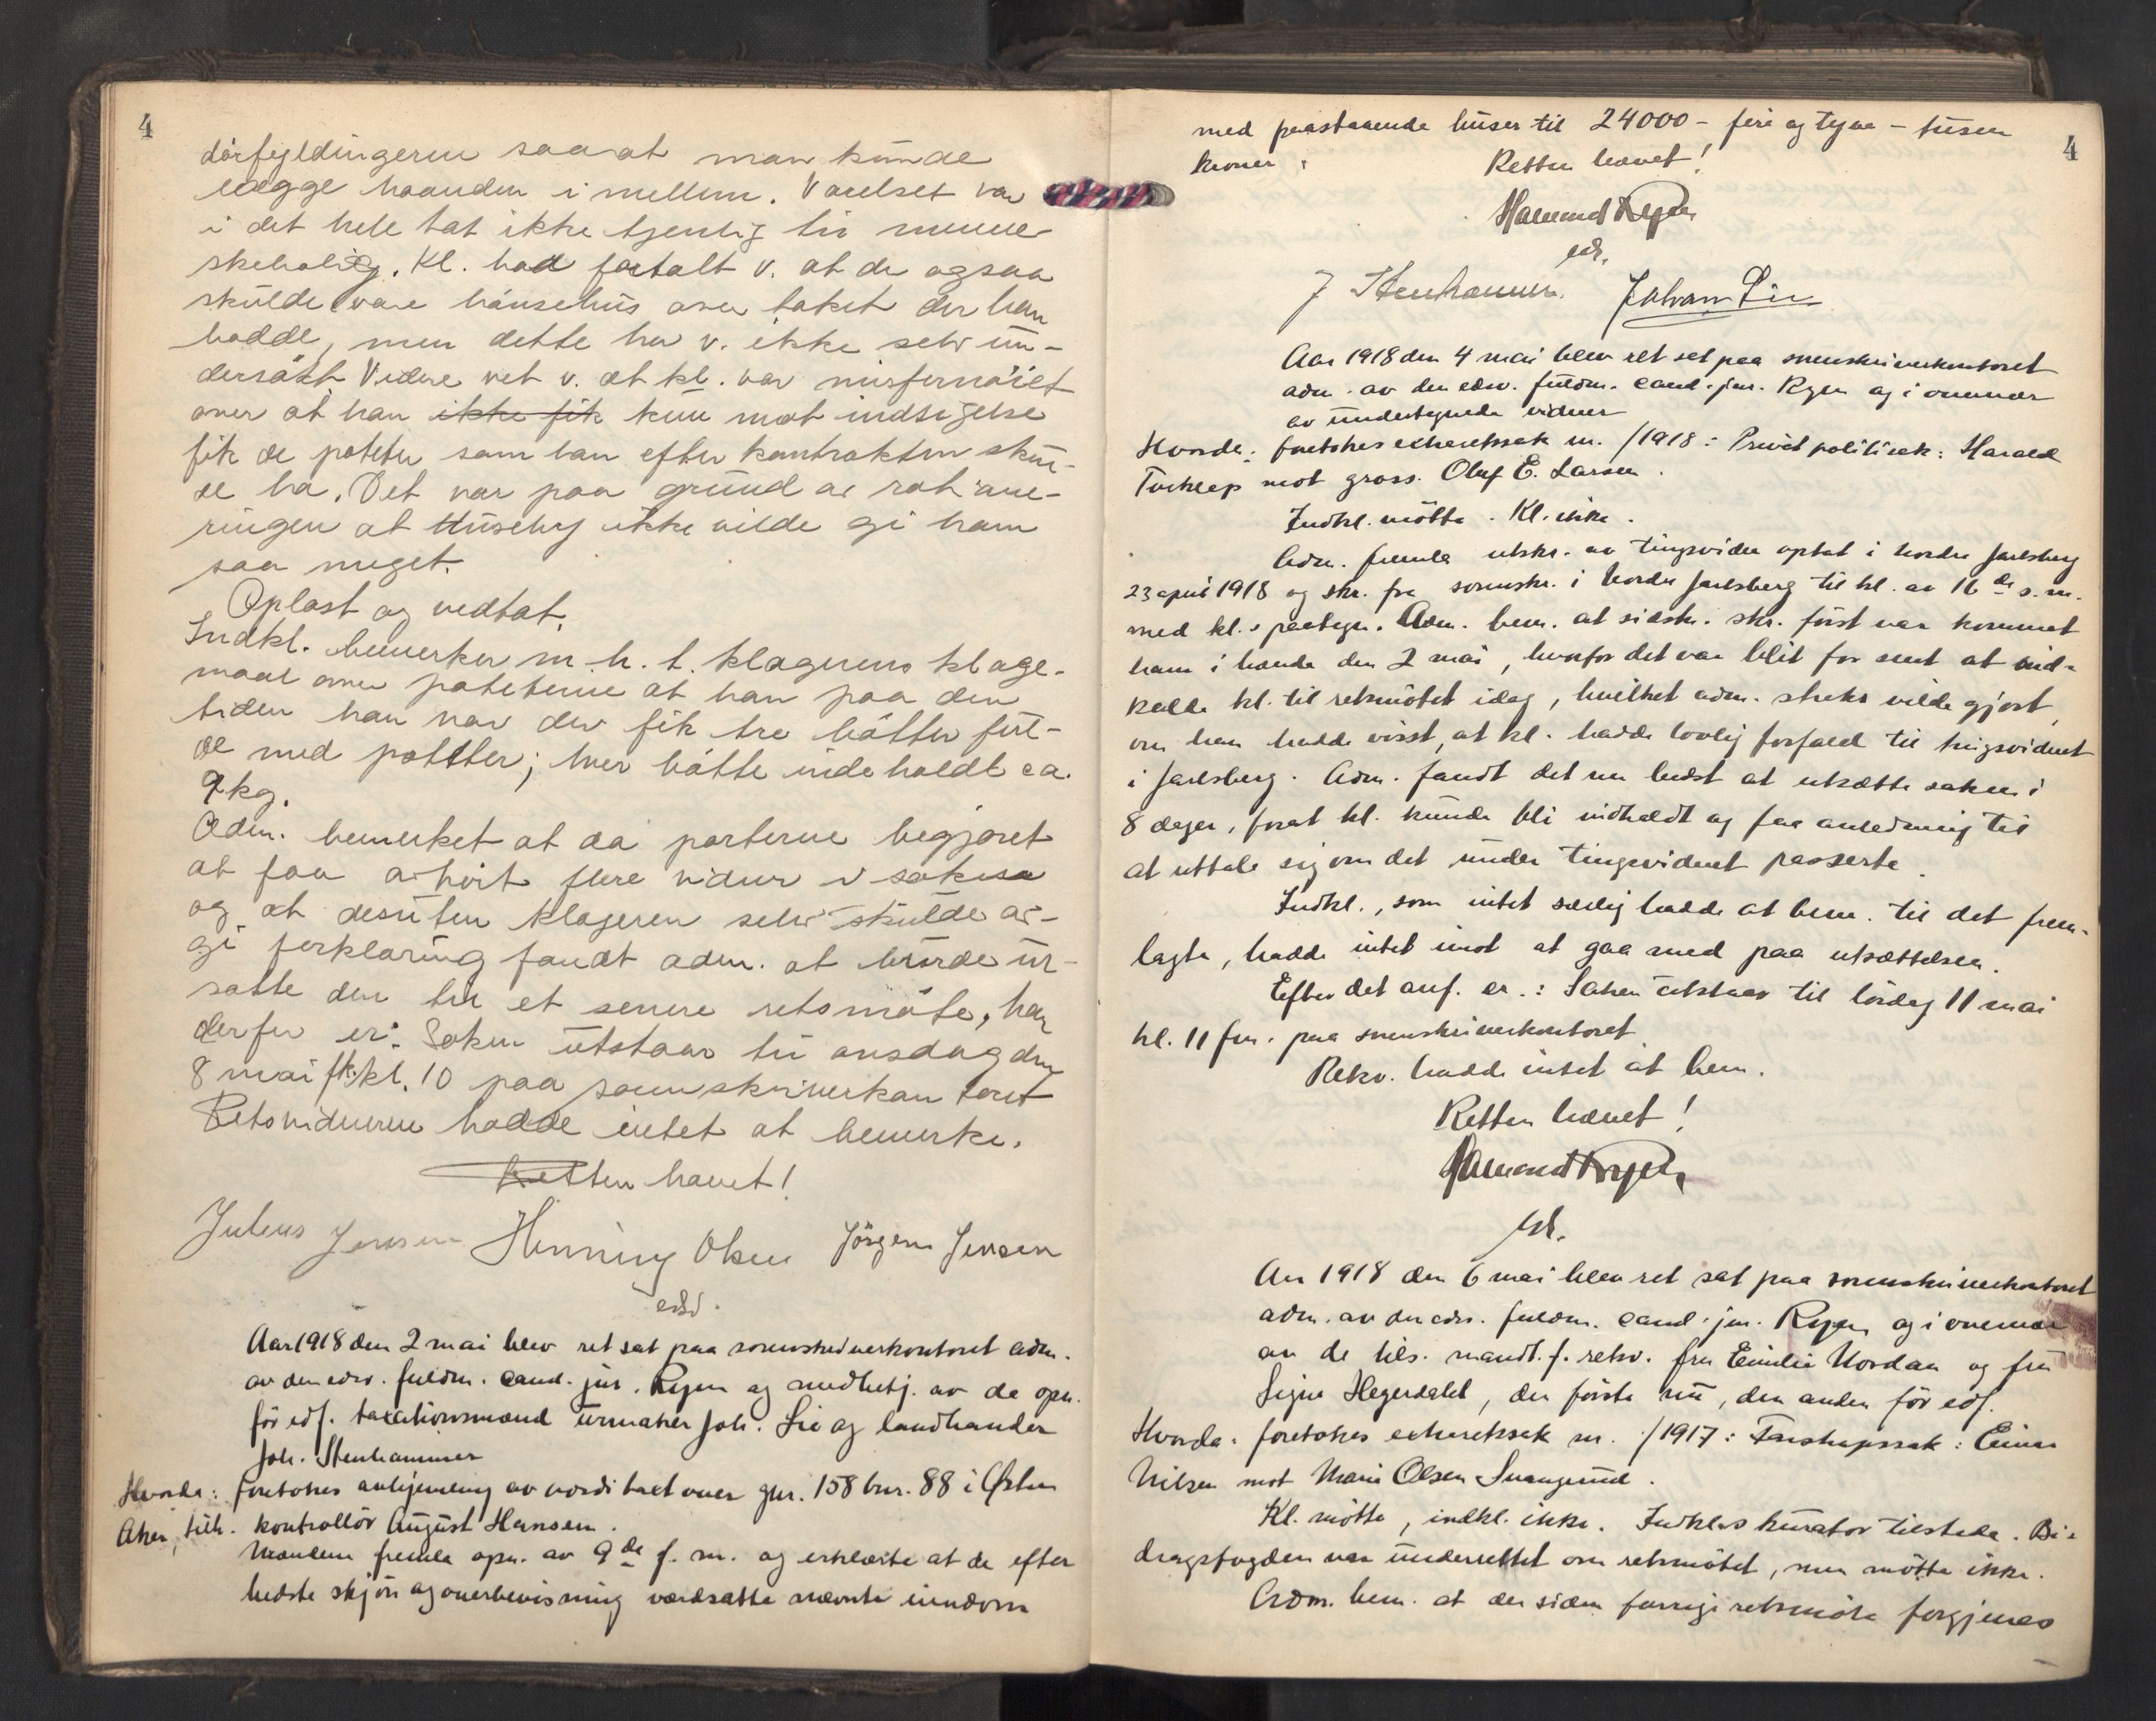 4
dörfyldingerne saa at man kunde
lægge haanden i mellem. Værelset var
i det hele tat ikke tjenlig til menne-
skebolig. Kl. had fortalt v. at de ogsaa
skulde være hönsehus over taket der han
hadde, men dette har v. ikke selv un-
dersökt. Videre vet v. at kl. var misfornöiet
over at han ikke fik kun mot indsigelse
fik de poteter som han efter kontrakten skul-
de ha. Det var paa grund av rationé-
ringen at Huseby ikke vilde gi ham
saa meget.
Oplæst og vedtat.
Indkl. bemerker m. h. t. klagerens klage-
maal over poteterne at han paa den
tiden han var der fik tre bötter ful-
de med poteter; hver bötte indeholdt ca.
9 kg.
Adm. bemerket at da parterne begjæret
at faa avhört flere vidner i saken
og at desuten klageren selv skulde av-
gi forklaring fandt adm. at burde ut-
sætte den til et senere retsmöte, han
derfor er: Saken utstaar til onsdag den
8 mai fk. kl. 10 paa sorenskriverkontoret
Retsvidnerne hadde intet at bemerke.
Retten hævet!
Julius Jensen Henning Olsen Jörgen Jensen
edsv.
Aar 1918 den 2 mai blev ret sat paa sorenskriverkontoret adm.
av den edsv. fuldm. cand. jur. Ryen og medbetj. av de opn.
för edf. taxationsmænd urmaker Joh. Lie og landhandler
Joh. Stenhammer
Hvorda: foretokes avhjemling av verditakst over gnr. 158 bnr. 88 i Östre
Aker, tilh. kontrollör August Hansen.
Mændene fremla opn. av 9de f. m. og erklærte at de efter
bedste skjön og overbevisning værdsatte nævnte eiendom
4
med paastaaende huser til 24000 - fire og tyve - tusen
kroner.
Retten hævet!
Halvard Ryen
edsv.
J Stenhammer. Johan Lie
Aar 1918 den 4 mai blev ret sat paa sorenskriverkontoret
adm. av den edsv. fuldm. cand. jur. Ryen og i overvær
av undertegnede vidner
Hvorda: foretokes extraretssak nr. /1918: Privat politisak: Harald
Torklep mot gross. Oluf E. Larsen.
Indkl. mötte. Kl. ikke.
Adm. fremla utskr. av tingsvidne optat i nordre Jarlsberg
23 april 1918 og skr. fra sorenskr. i Nordre Jarlsberg til kl. av 16de s. m.
med kl.s paategn. Adm. bem. at sidstn. skr. först var kommet
ham i hænde den 2 mai, hvorfor det var blit for sent at ind-
kalde kl. til retsmötet idag, hvilket adm. straks vilde gjort,
om han hadde visst, at kl. hadde lovlig forfald til tingsvidnet
i Jarlsberg. Adm. fandt det nu bedst at utsætte saken i
8 dager, forat kl. kunde bli indkaldt og faa anledning til
at uttale sig om det under tingsvidnet passerte.
Indkl., som intet særlig hadde at bem. til det frem-
lagte, hadde intet imot at gaa med paa utsættelsen.
Efter det anf. er.: Saken utstaar til lördag 11 mai
kl. 11 fm. paa sorenskriverkontoret
Rekv. hadde intet at bem.
Retten hævet!
Halvard Ryen
edsv.
Aar 1918 den 6 mai blev ret sat paa sorenskriverkontoret
adm. av den edsv. fuldm. cand. jur. Ryen og i overvær
av de tils. mandt. f. retsv. fru Emilie Nordan og fru
Signe Hegerdahl, den förste nu, den anden för edf.
Hvorda: foretokes extraretssak nr. /1917: Farskapssak: Einar
Nilsen mot Marie Olsen Svangerud.
Kl. mötte, indkl. ikke. Indkl.s kurator tilstede. Bi-
dragsfogden var underrettet om retsmötet, men mötte ikke.
Adm. bem. at der siden forrige retsmöte forgjæves